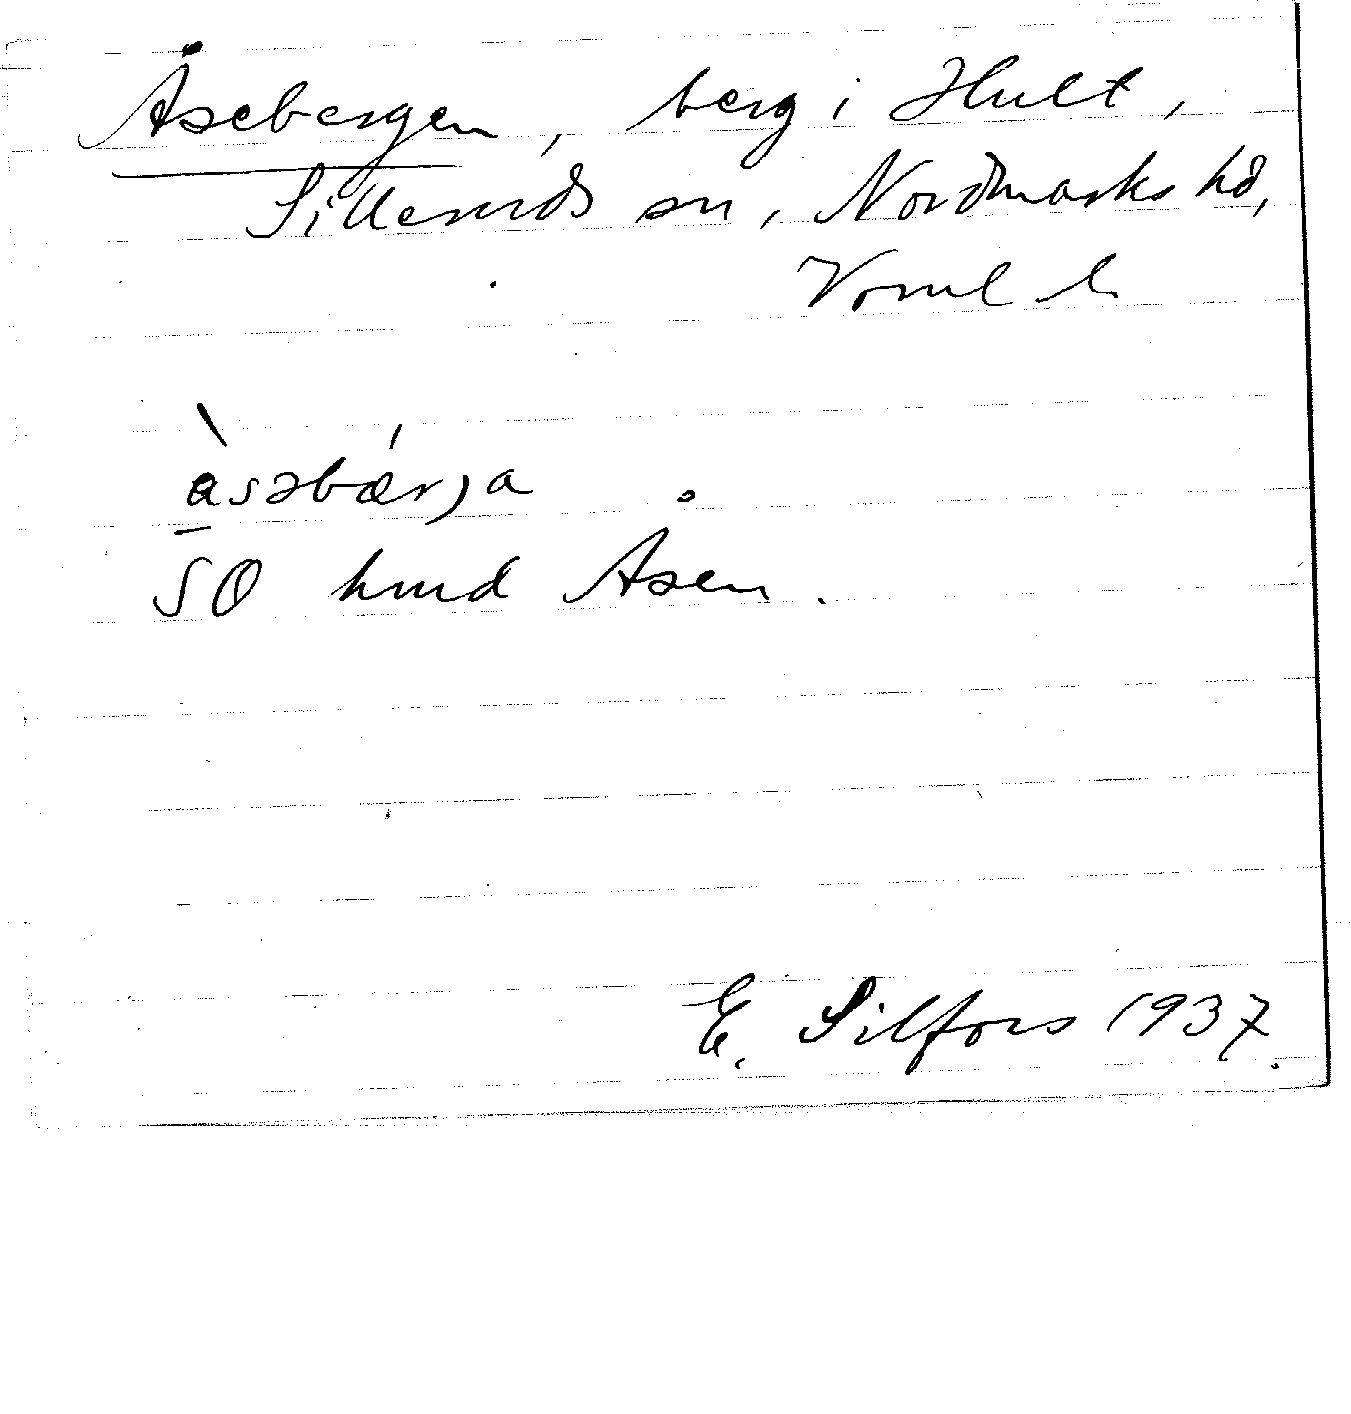 Åsebergen, berg i Hult,
Silleruds sn, Nordmarks hd,
Värml l.
àsəbǽrja
SO hmd Åsen.
E. Silfors 1937.